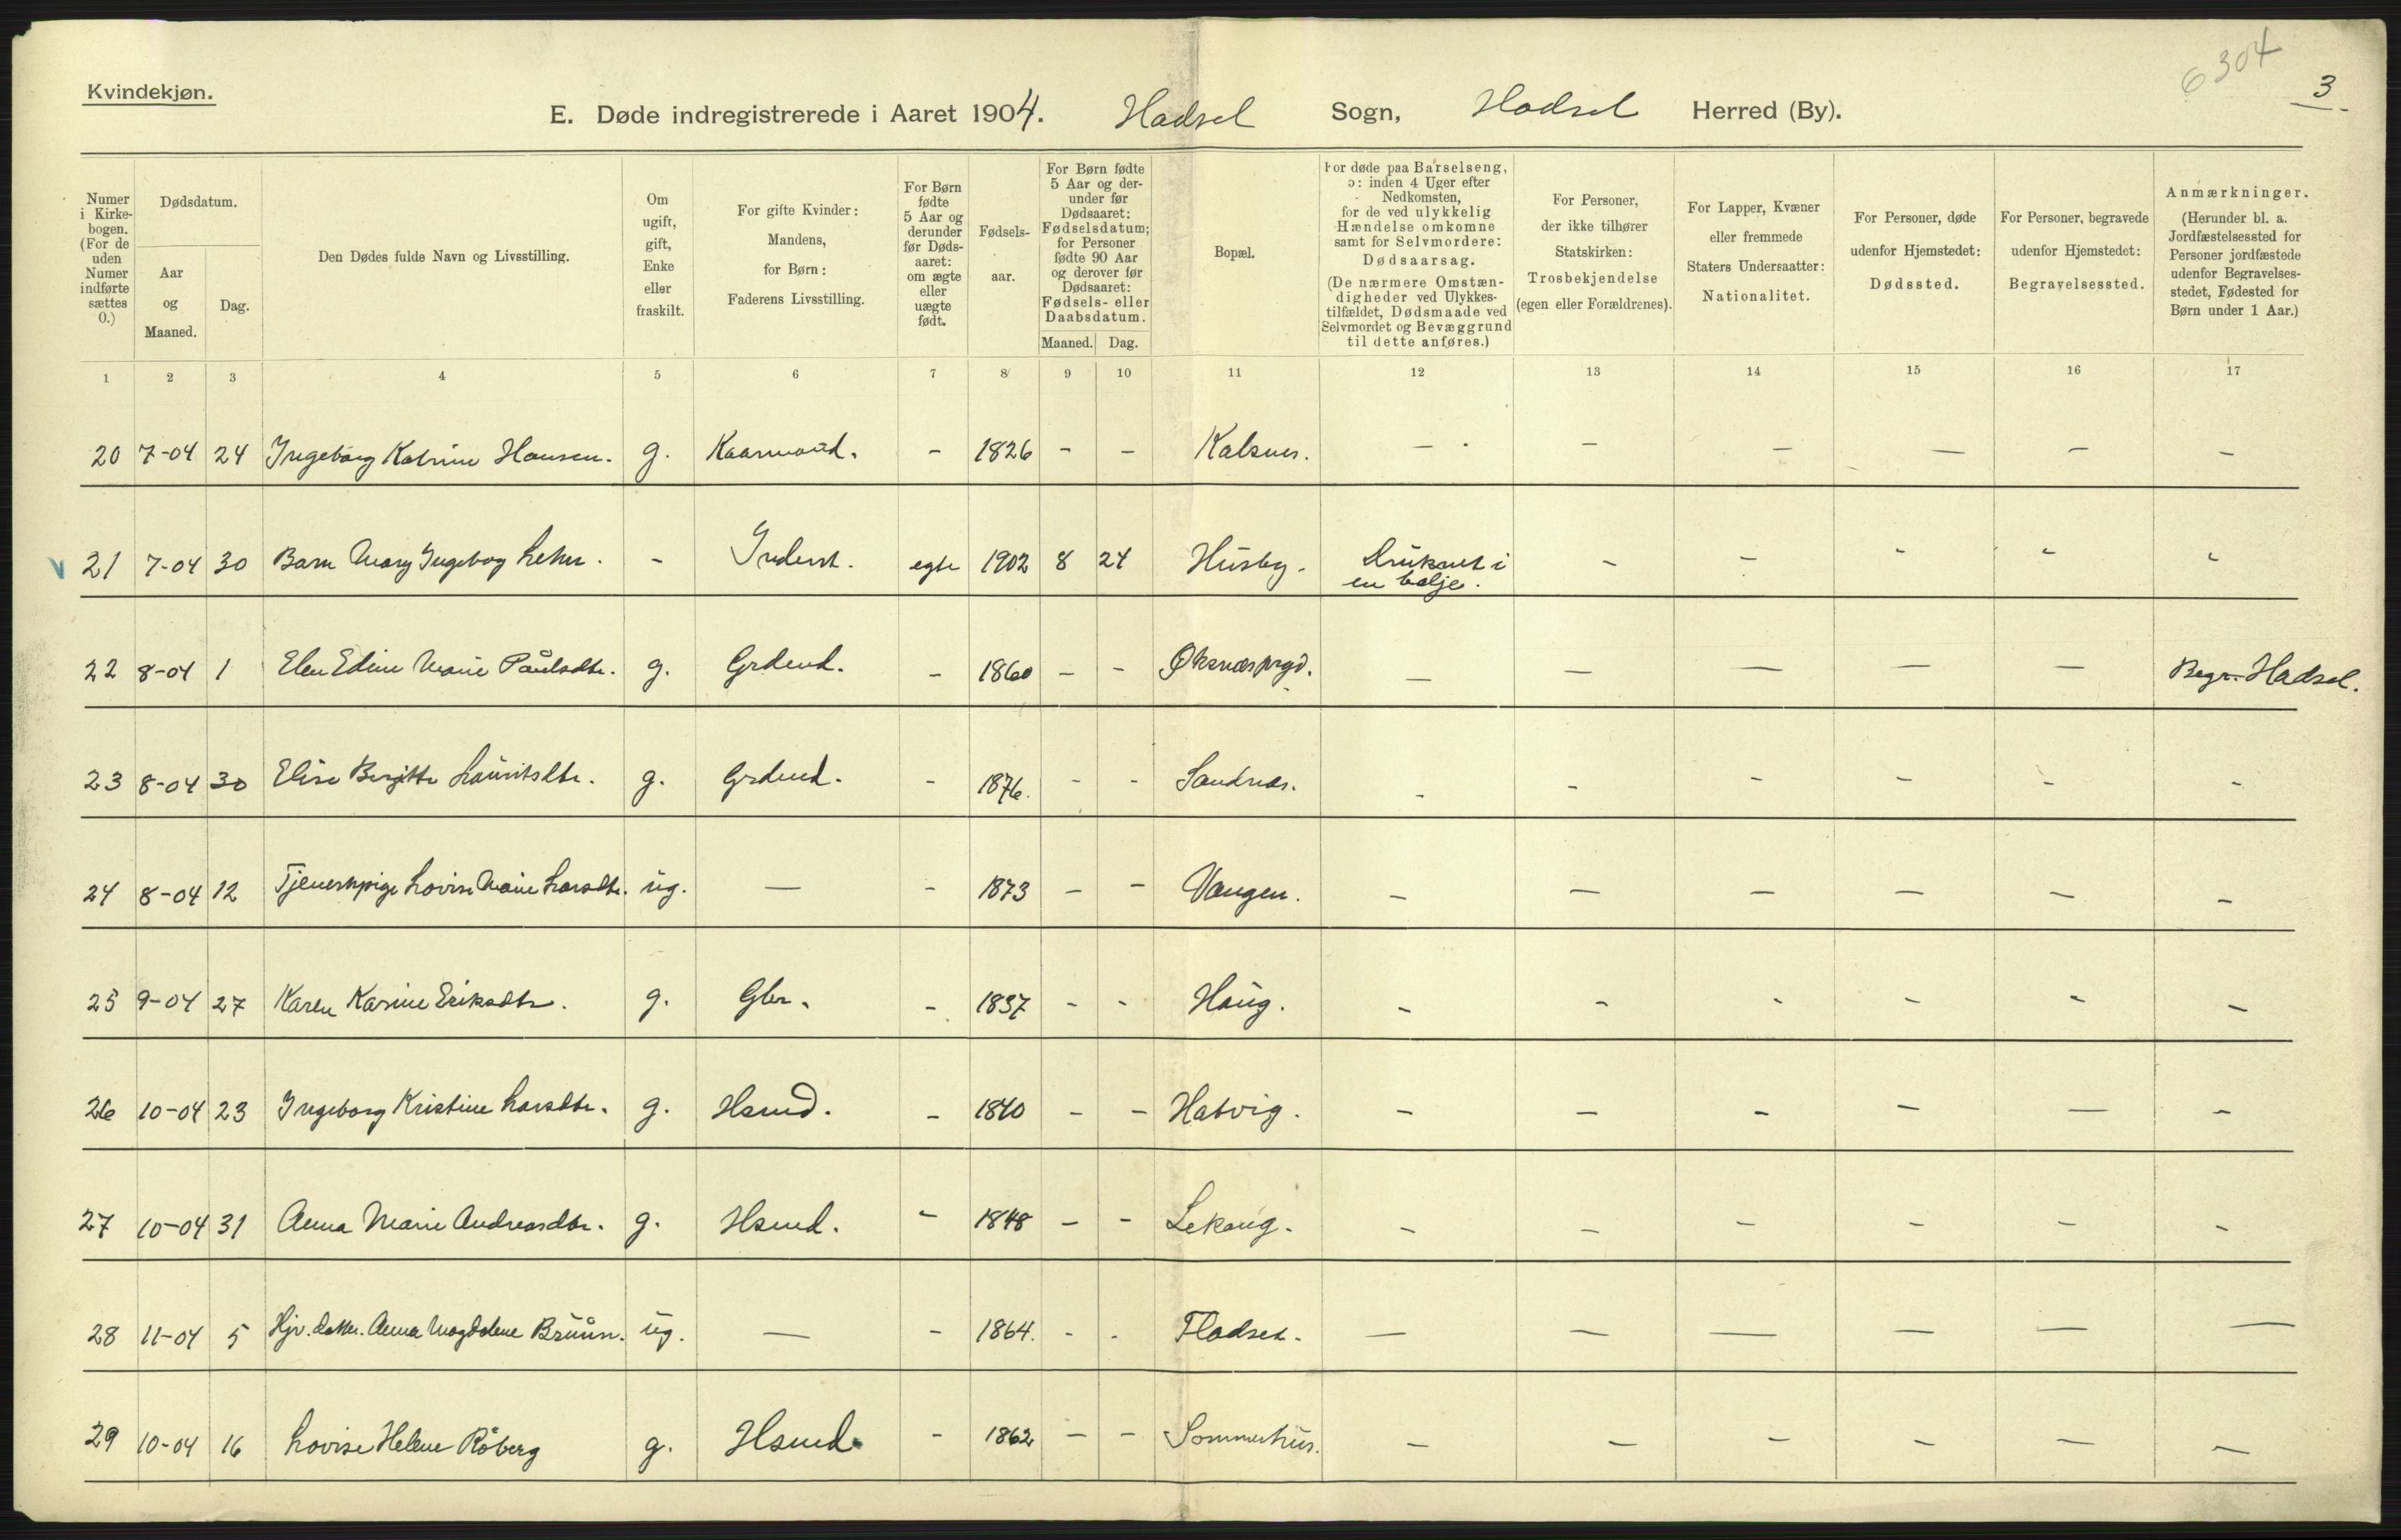 Kvindekjøn.
6 304
3
E. Døde indregistrerede i Aaret 1904. Hadsel Sogn, Hadsel Herred (By).
Numer i Kirkebogen. (For de uden Numer indførte sættes 0.)
Dødsdatum.
Aar og Maaned.
Dag.
Den Dødes fulde Navn og Livsstilling.
Om ugift, gift, Enke eller fraskilt.
For gifte Kvinder: Mandens, for Børn: Faderens Livsstilling.
For Børn fødte 5 Aar og derunder før Dødsaaret: om ægte eller uægte født.
Fødselsaar.
For Børn fødte 5 Aar og derunder før Dødsaaret: Fødselsdatum; for Personer fødte 90 Aar og derover før Dødsaaret: Fødsels- eller Daabsdatum.
Maaned. Dag.
Bopæl.
For døde paa Barselseng, ɔ: inden 4 Uger efter Nedkomsten, for de ved ulykkelig Hændelse omkomne samt for Selvmordere: Dødsaarsag.
(De nærmere Omstændigheder ved Ulykkestilfældet, Dødsmaade ved Selvmordet og Bevæggrund til dette anføres.)
For Personer, der ikke tilhører Statskirken: Trosbekjendelse (egen eller Forældrenes).
For Lapper, Kvæner eller fremmede Staters Undersaatter: Nationalitet.
For Personer, døde udenfor Hjemstedet: Dødssted.
For Personer, begravede udenfor Hjemstedet: Begravelsessted.
Anmærkninger.
(Herunder bl. a. Jordfæstelsessted for Personer jordfæstede udenfor Begravelsesstedet, Fødested for Børn under 1 Aar.)
1 2 3 4 5 6 7 8 9 10 11 12 13 14 15 16 17
20 7-04 24 Ingeborg Katrine Hansen. g. Kaarmand. - 1826 - - Kalsnes. - - - - - -
V 21 7-04 30 Barn Mary Ingeborg - Inderst. egte 1902 8 24 Husby. Druknet i en balje. - - - - -
22 8-04 1 Elen Edine Marie Paulsdtr. g. Grdmd. - 1860 - - Øksnæs prgd. - - - - - Begr. Hadsel.
23 8-04 30 Elise Bergitte Lauritsdtr. g. Grdmd. - 1876. - - Sandnes. - - - - - -
24 8-04 12 Tjenestepige Lovise Marie Larsdtr. ug. - - 1873 - - Vangen. - - - - - -
25 9-04 27 Karen Karine Eriksdtr. g. Gbr. - 1837 - - Haug. - - - - - -
26 10-04 23 Ingeborg Kristine Larsdtr. g. Hsmd. - 1840 - - Hatvig. - - - - - -
27 10-04 31 Anna Marie Andreasdtr. g. Hsmd. - 1848 - - Lekang. - - - - - -
28 11-04 5 Hjv. datter. Anna Magdalene Bruun. ug. - - 1864. - - Fladset. - - - - - -
29 10-04 16 Lovise Helene Röberg g. Hsmd. - 1862 - - Sommerhus. - - - - - -